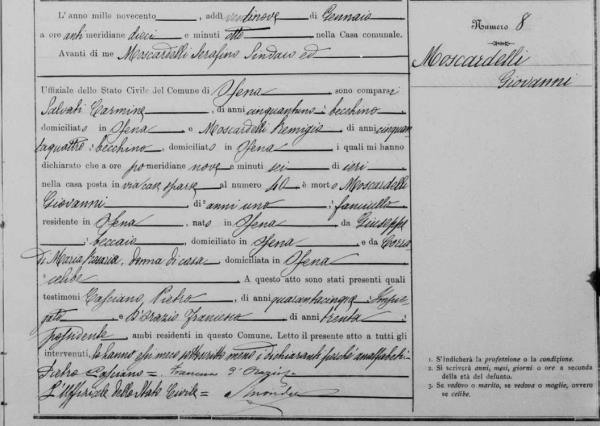 L'anno millenovecento, addì ventinove di Gennaio
a ore antimeridiane dieci e minuti otto nella Casa comunale.
Avanti di me Moscardelli Serafino Sindaco ed
Uffiziale dello Stato Civile del Comune di Ofena sono comparsi
Salvati Carmine, di anni cinquantuno: becchino
domiciliato in Ofena e Moscardelli Remigio di anni cinquan
taquattro: becchino, domiciliato in Ofena i quali mi hanno
dichiarato che a ore pomeridiane nove e minuti sei di ieri
nella casa posta in via case sparse al numero 40 è morto Moscardelli
Giovanni di anni uno: fanciullo
residente in Ofena, nato in Ofena da Giuseppe
: beccaio domiciliato in Ofena e da
di Maria donna di casa domiciliata in Ofena
: celibe A questo atto sono stati presenti quali
testimoni Cassiano Pietro, di anni quarantacinque: Impie
gato e D'Orazio Francesco di anni trenta:
possidente ambi residenti in questo Comune. Letto il presente atto a tutti gli
intervenuti, lo hanno con meco sottoscritto meno i dichiaranti perché analfabeti
Pietro Cassiano = Francesco D'Orazio
L'Uffiziale dello Stato Civile =
Numero 8
Moscardelli
Giovanni
1. S'indicherà la professione o la condizione.
2. Si scriverà anni, mesi, giorni o ore a seconda
della età del defunto.
3. Se vedovo o marito, se vedova o moglie, ovvero
se celibe.